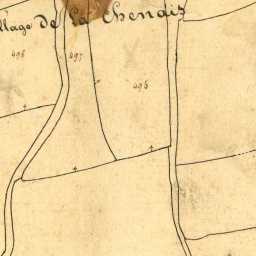 llage De la Chenais
498
497
496